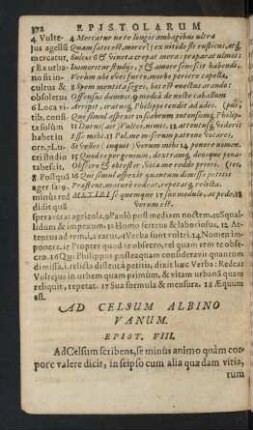 372 EPISTOLARUM
4 Vulte- 4 Mercatur ne te longis ambagibus ultra
jus agellū Quam satis est, morer: ex nitido fit rusticus, atq́;
mercatur, Sulcos 6 & vineta crepat mera: præparat ulmos:
5 Ex urba- Immoritur studijs, 7 & amore senescit habendi.
no fit in- Verùm ubi oves furto, morbo periere capellæ,
cultus & 8 Spem mentita seges, bos est enectus arando:
obsoletus Offensus damnis 9 media de nocte caballum
6 Loca vi- Arripit, iratusq́; Philippi tendit ad ædes.
tis, ra- Quem simul aspexit scabrum intonsumq́; Philip-
tiosus in Durus, ait, Vultei, nimis, 12 attentusq́; videris
habet in Esse mihi. 13 Pol me miserum patrone vocares,
ore. 7 Lu- & Velles inquit, verum mihi 14 ponere nomen.
cri studio 15 Quod te per genium, dextramq́, deosque penates
tabescit. Obsecro & obtestor, vitæ me redde priori.
8 Postquā 16 Qui simul aspexit quantum dimissa petitis
ager fa- Præstent, mature redeat, repetatq́, relicta.
minus red METIRI se quemque 17 suo modulo, ac pede, 18
dit sit quā Verum est.
speraverat agricola, 9 Paulò post mediam noctem, 10 Squal-
lidum & impexum. 11 Homo ferreus & laboriosus. 12 At-
tentus ad rem, i. avarus, 13 Verba sunt vultei. 14 Nomen im-
ponere. 15 Propter quod te obsecro, tel quam rem te obse-
cro. 16 Qui Philippus postea quàm consideravit quantum
dimissa, i. relicta distent à petitis, dixit hæc Verba: Redeat
Vultejus in urbem quam primùm, & vitam urbanā quam
reliquit, repetat. 17 Sua formula & mensura. 18 Æquum
est.
AD CELSUM ALBINO
VANUM.
EPIST. VIII.
Ad Celsum scribens, se minùs animo quàm cor-
pore valere dicit, in seipso cum alia quædam vitia,
tum